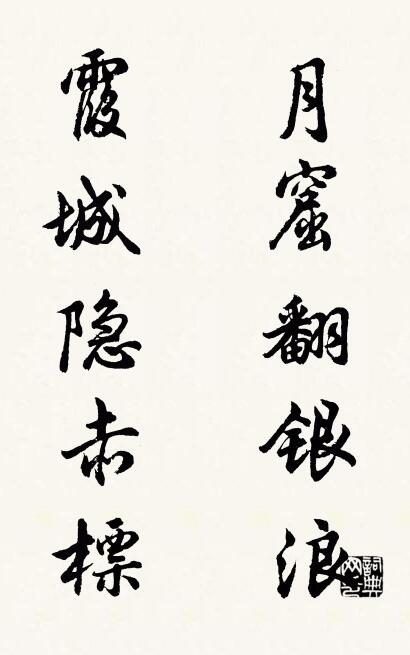 月窟翻银浪
霞城隐赤標
詞典网